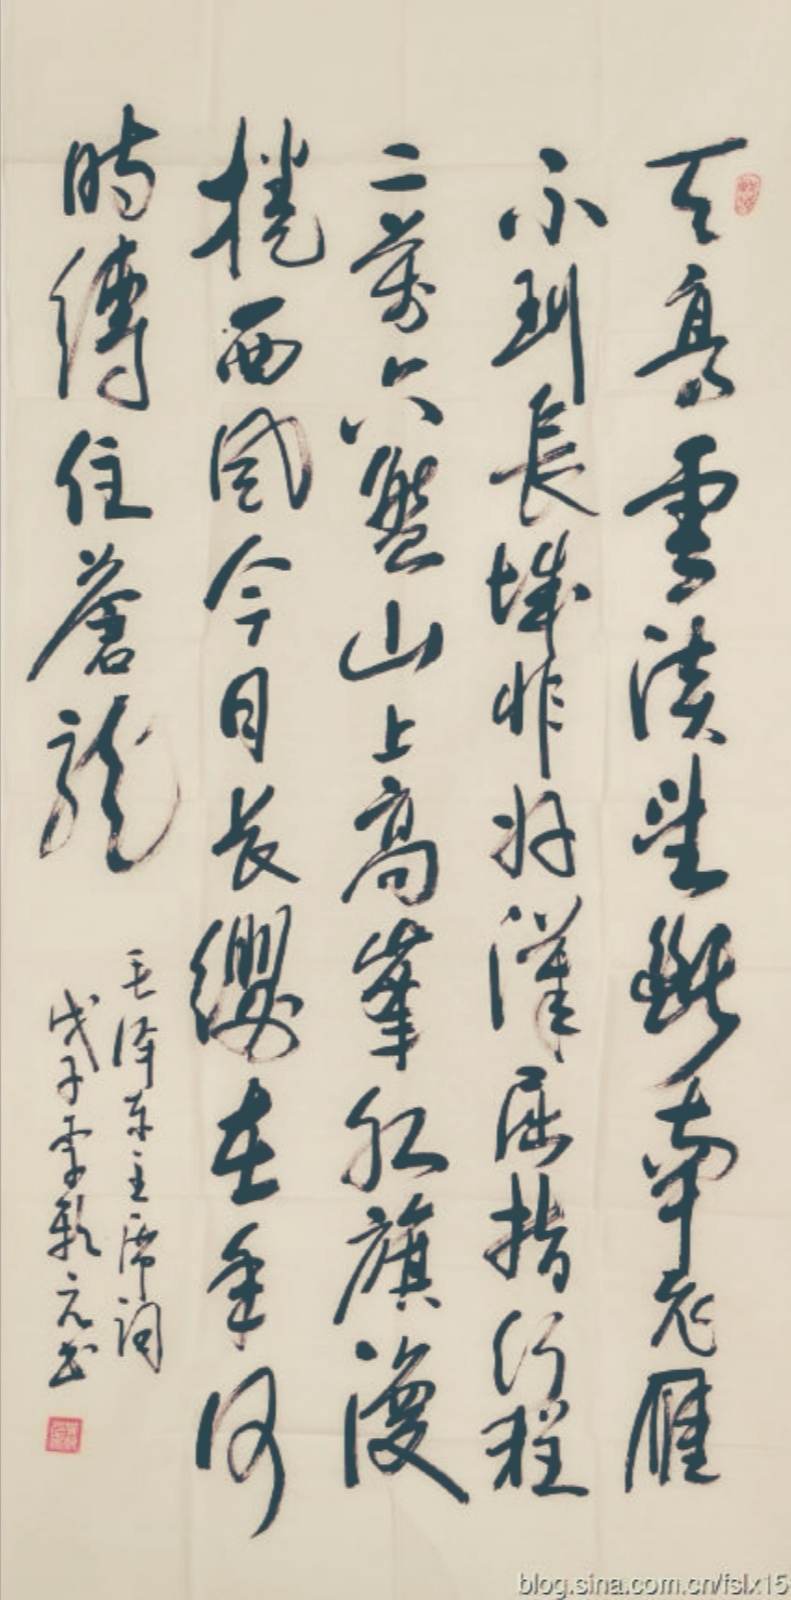 天高雲淡望斷南飛雁
不到長城非好漢屈指行程
二萬六盤山上高峯紅旗漫
捲西風今日长纓在手何
時縛住蒼龍
毛泽东主席词
戊子
blog.sina.com.cn/fslx15